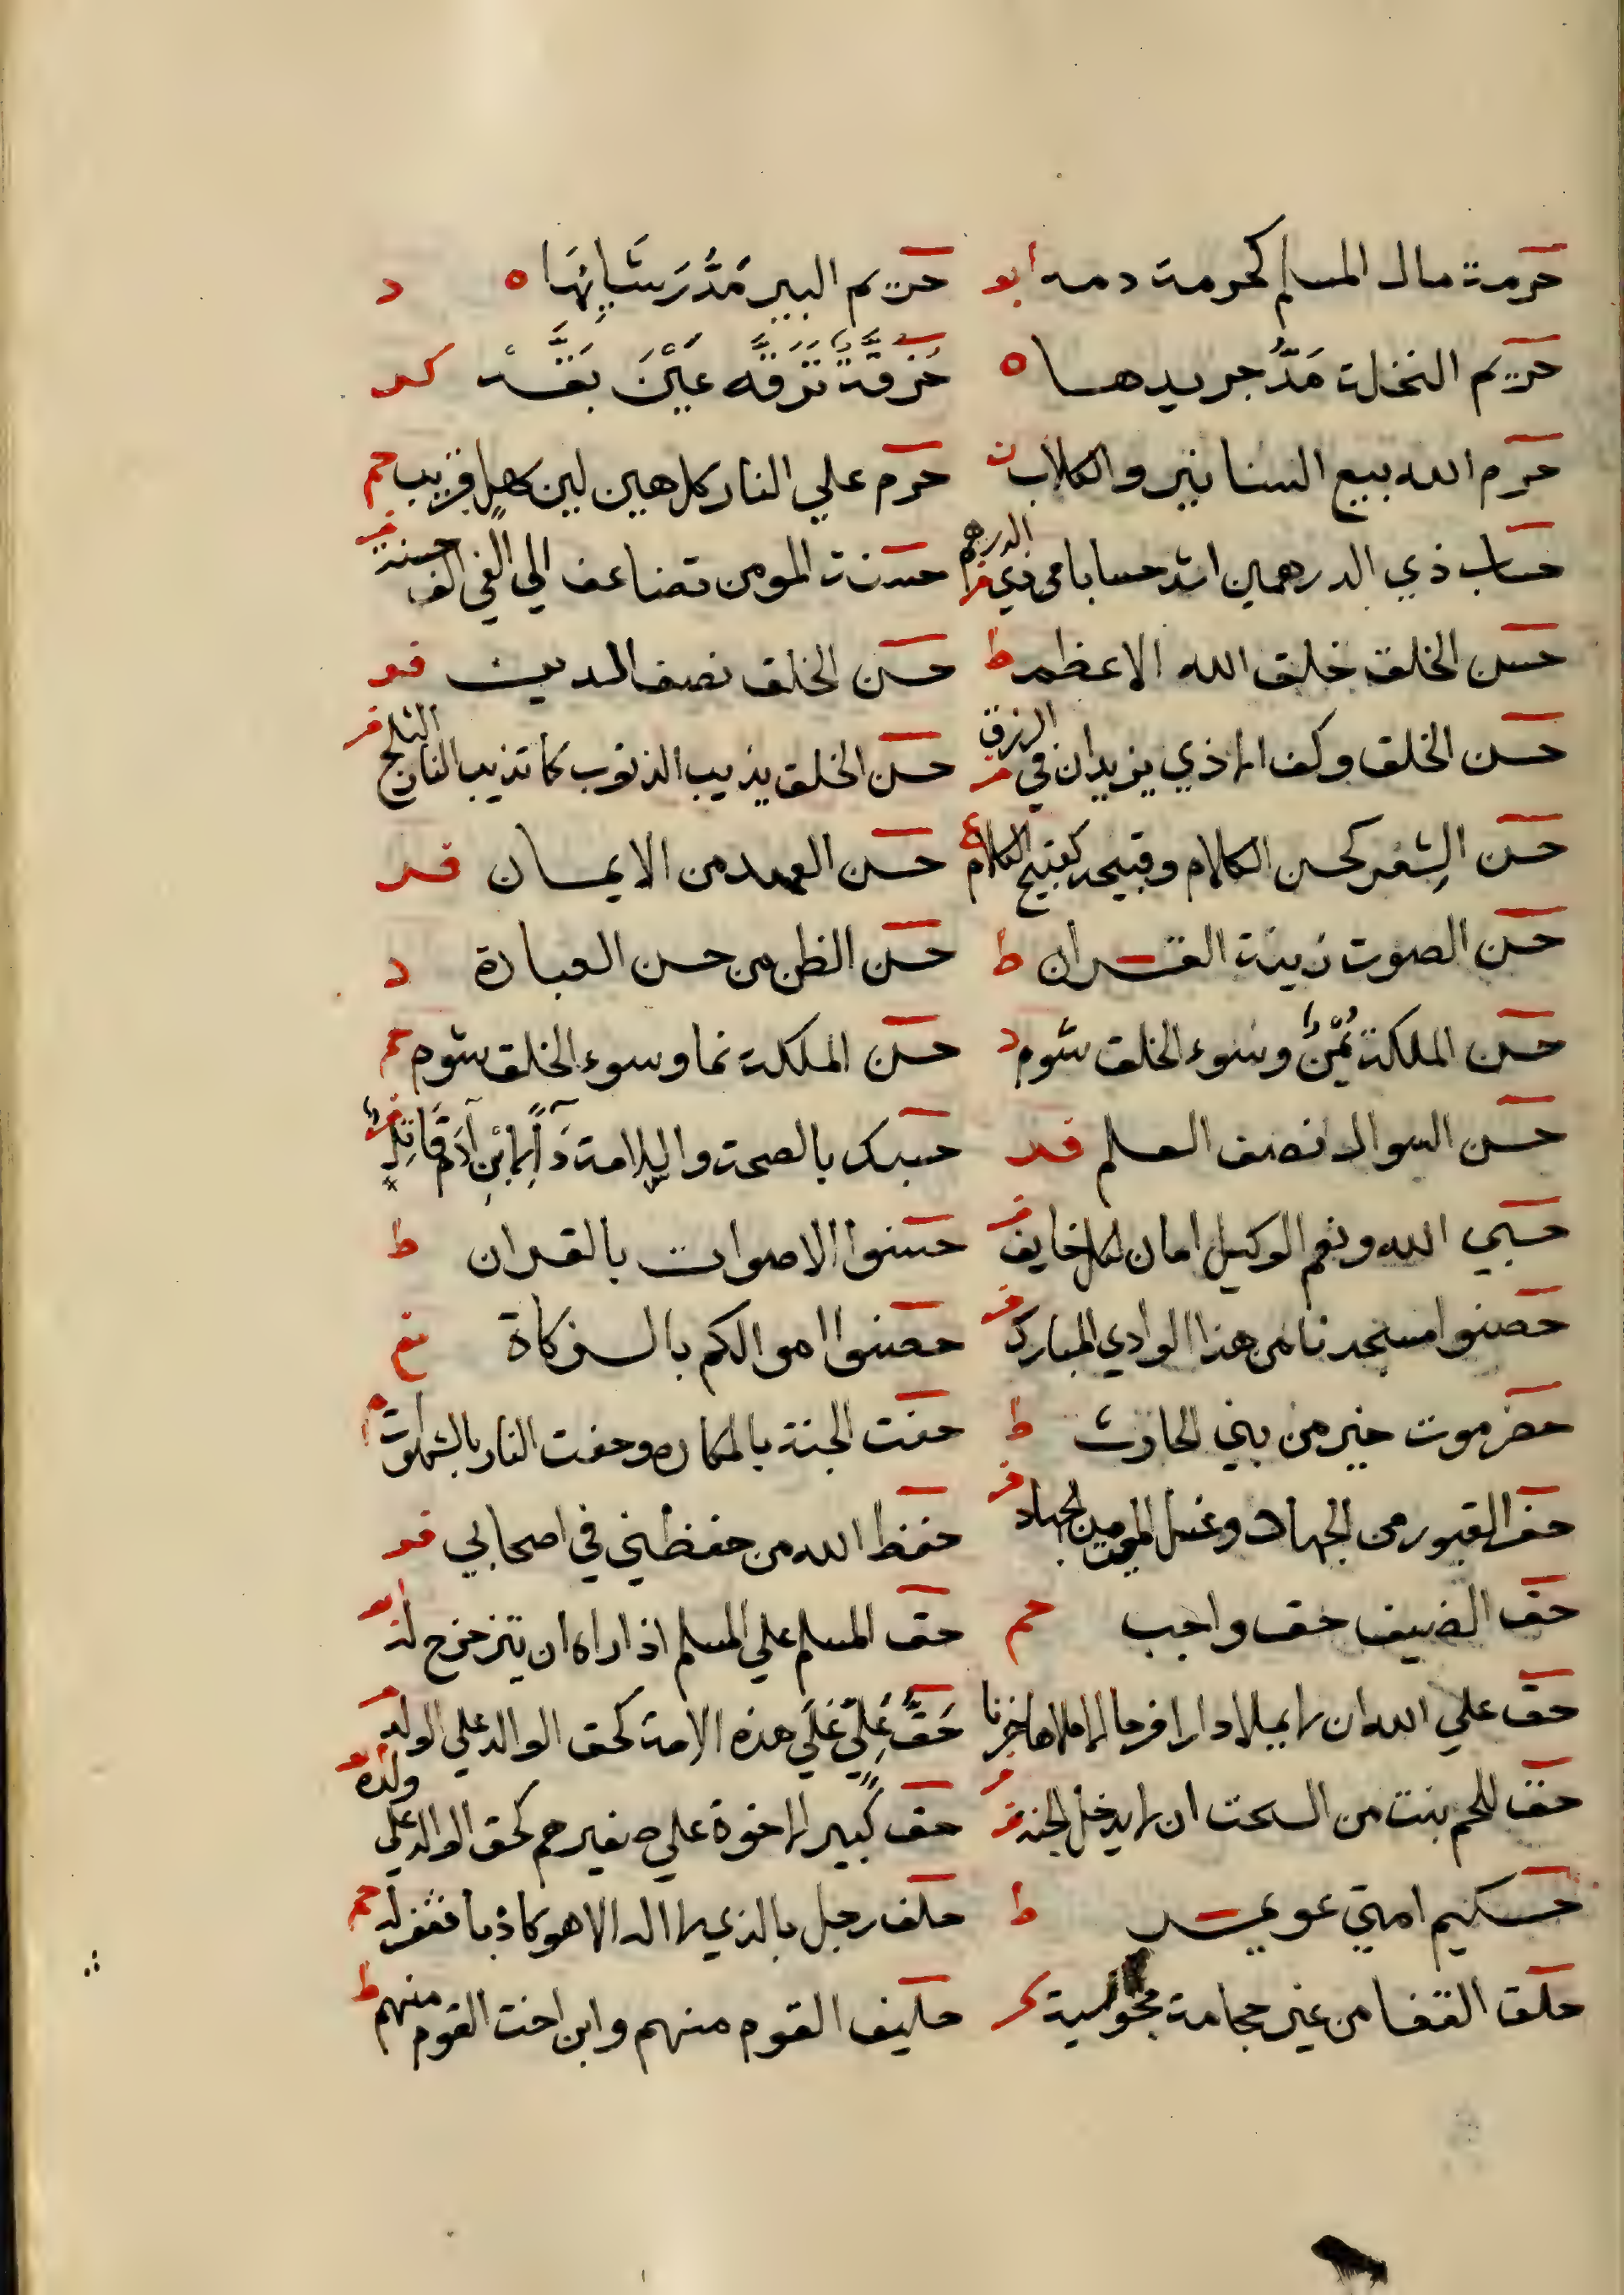 حرمة مال المسلم كحرمة دمه ابو حريم البير مَدُّ رَشَائِهَا ه د
حريم النخلة مَدُّ جريدها ه حُزُقَّةٌ تَرَقَّه عَيْنَ بَقَّه كد
حرم الله بيع السنانير والكلاب ن حرم علي النار كل هين لين سهل قريب حم
حساب ذي الدرهمين اشد حسابا من ذي الدرهم فر حسنة المومن تضاعف الي الفي الف حسنة فر
حسن الخلق خلق الله الاعظم ط حسن الخلق نصف الدين فو
حسن الخلق وكف الاذي يزيدان في الرزق فر حسن الخلق يذيب الذنوب كما تذيب النار الثلج فر
حسن الشِعْر كحسن الكلام وقبيحه كقبيح الكلام ع حسن العهد من الايمان فد
حسن الصوت زينة القران ط حسن الظن من حسن العبادة د
حسن الملكة يُمْنٌ وسوء الخلق شوم د حسن الملكة نما وسوء الخلق شوم حم
حسن السوال نصف العلم فد حسبك بالصحة والسلامة دَآءً لِابْنِ آدَمَ قَاتِلًا فر
حسبي الله ونعم الوكيل امان لكل خايف فر حسنوا الاصوات بالقران ط
حصنوا مسجدنا من هذا الوادي المبارك فر حصنوا اموالكم بالزكاة نع
حضرموت خير من بني الحارث ط حفت الجنة بالمكاره وحفت النار بالشهوات م
حفر القبور من الجهاد وغسل الموتي من الجهاد فر حفظ الله من حفظني في اصحابي فو
حق الضيف حق واجب حم حق المسلم علي المسلم اذا راه ان يتزحزح له ابو
حق علي الله ان لا يملا دارا فرحا الا ملاها حزنا حَقُّ عَلِيٍّ عَلَي هذه الامة كحق الوالد علي الولد فر
حق للحم نبت من السحت ان لا يدخل الجنة فر حق كبير الاخوة علي صغيرهم كحق الوالد علي ولده ابو
حكيم امتي عويمر ط حلف رجل بالذي لا اله الا هو كاذبا فغفر له حم
حلق القفا من غير حجامة مجوسية كر حليف القوم منهم وابن اخت القوم منهم ط